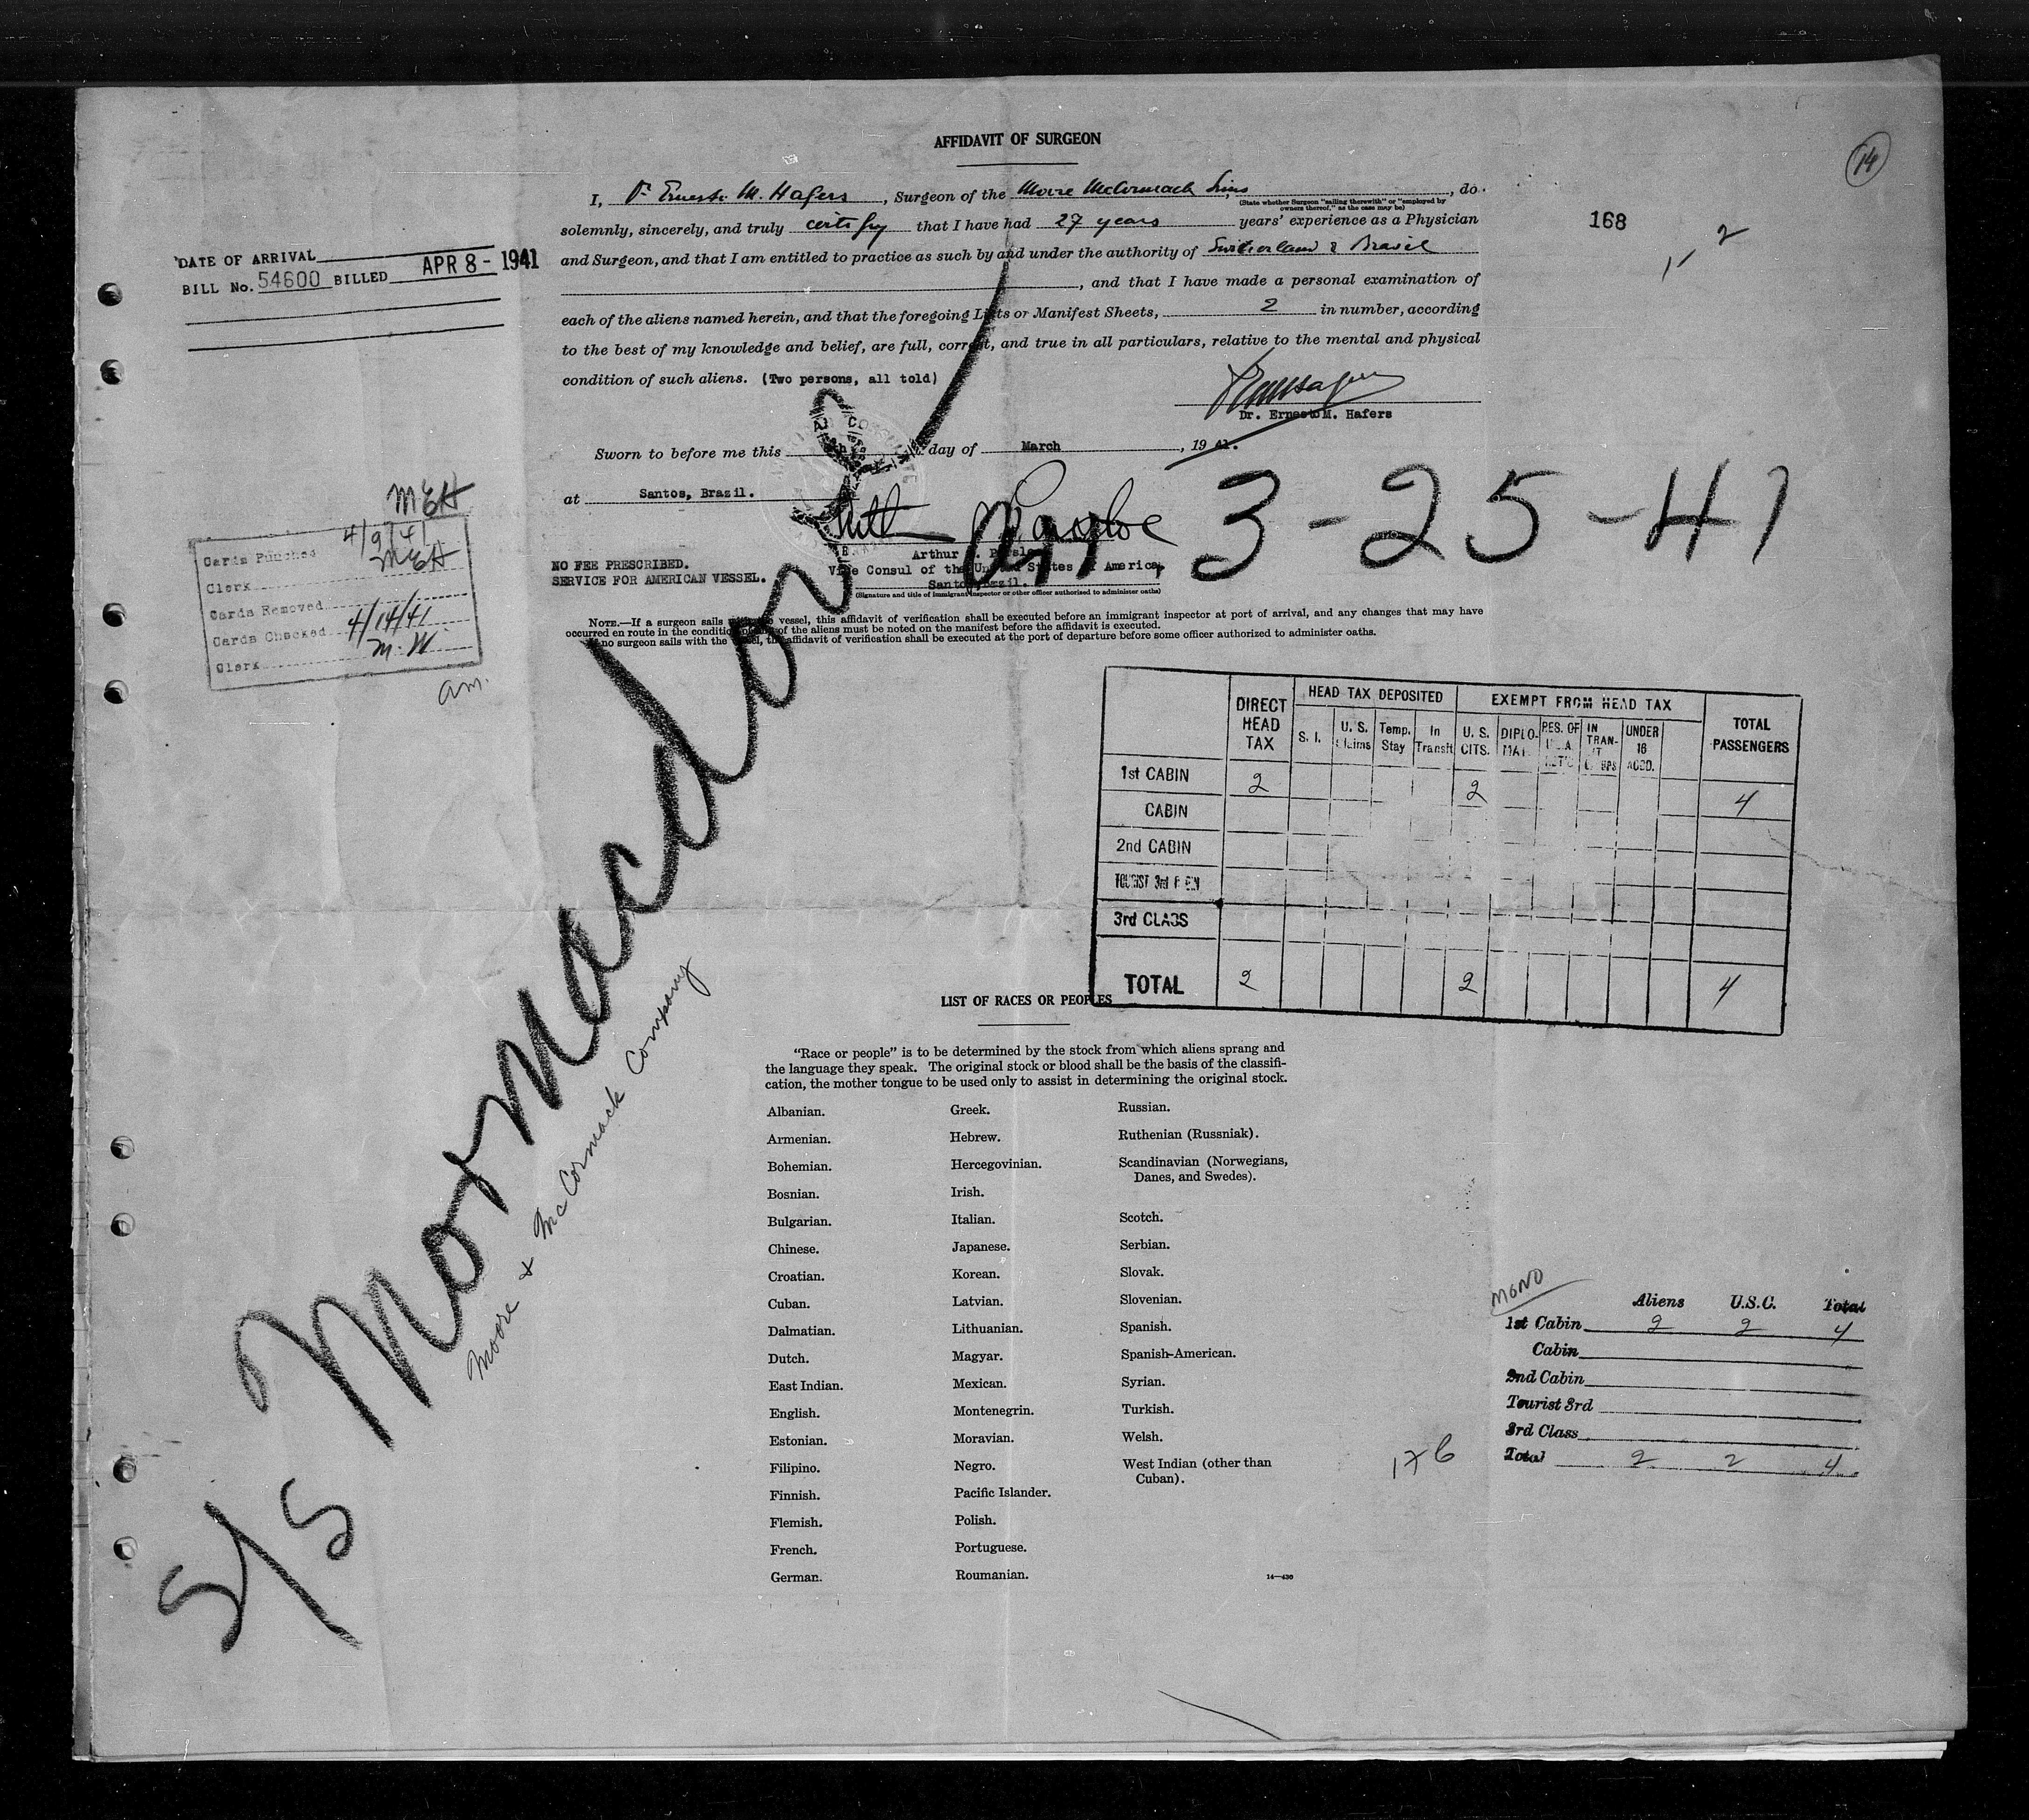 AFFIDAVIT OF SURGEON
14
I, Dr Ernesto M. Hafers, Surgeon of the Moore McCormack Lines, do
(State whether Surgeon "sailing therewith" or "employed by owners thereof," as the case may be)
solemnly, sincerely, and truly certify that I have had 27 years years' experience as a Physician
and Surgeon, and that I am entitled to practice as such by and under the authority of Switzerland & Brasil
, and that I have made a personal examination of
each of the aliens named herein, and that the foregoing Lists or Manifest Sheets, 2 in number, according
to the best of my knowledge and belief, are full, correct, and true in all particulars, relative to the mental and physical
condition of such aliens. (Two persons, all told)
Dr. Ernesto M. Hafers
Sworn to before me this day of March, 1941.
at Santos, Brazil.
168
2
DATE OF ARRIVAL
BILL No. 54600 BILLED APR 8 - 1941
MEH
Cards Punched 4/9/41
Clerk MEH
Cards Removed
Cards Checked 4/14/41
Clerk M.W
am.
3-25-41
Arthur
Vice Consul of the United States of America,
Santos, Brazil.
(Signature and title of immigrant inspector or other officer authorized to administer oaths)
NO FEE PRESCRIBED.
SERVICE FOR AMERICAN VESSEL.
NOTE.—If a surgeon sails with the vessel, this affidavit of verification shall be executed before an immigrant inspector at port of arrival, and any changes that may have
occurred en route in the condition of any of the aliens must be noted on the manifest before the affidavit is executed.
If no surgeon sails with the vessel, the affidavit of verification shall be executed at the port of departure before some officer authorized to administer oaths.
S/S Mormacdove
Moore & McCormack Company
DIRECT HEAD TAX
HEAD TAX DEPOSITED
EXEMPT FROM HEAD TAX
TOTAL PASSENGERS
S. I. U. S. Claims Temp. Stay In Transit U. S. CITS. DIPLOMAT. RES. OF U.S.A. IN TRANSIT UNDER 16 ACCD.
1st CABIN 2 2 4
CABIN
2nd CABIN
TOURIST 3rd
3rd CLASS
TOTAL 2 2 4
LIST OF RACES OR PEOPLES
"Race or people" is to be determined by the stock from which aliens sprang and
the language they speak. The original stock or blood shall be the basis of the classifi-
cation, the mother tongue to be used only to assist in determining the original stock.
Albanian.
Armenian.
Bohemian.
Bosnian.
Bulgarian.
Chinese.
Croatian.
Cuban.
Dalmatian.
Dutch.
East Indian.
English.
Estonian.
Filipino.
Finnish.
Flemish.
French.
German.
Greek.
Hebrew.
Hercegovinian.
Irish.
Italian.
Japanese.
Korean.
Latvian.
Lithuanian.
Magyar.
Mexican.
Montenegrin.
Moravian.
Negro.
Pacific Islander.
Polish.
Portuguese.
Roumanian.
Russian.
Ruthenian (Russniak).
Scandinavian (Norwegians,
Danes, and Swedes).
Scotch.
Serbian.
Slovak.
Slovenian.
Spanish.
Spanish-American.
Syrian.
Turkish.
Welsh.
West Indian (other than
Cuban).
14—430
176
MONO
Aliens U.S.C. Total
1st Cabin 2 2 4
Cabin
2nd Cabin
Tourist 3rd
3rd Class
Total 2 2 4